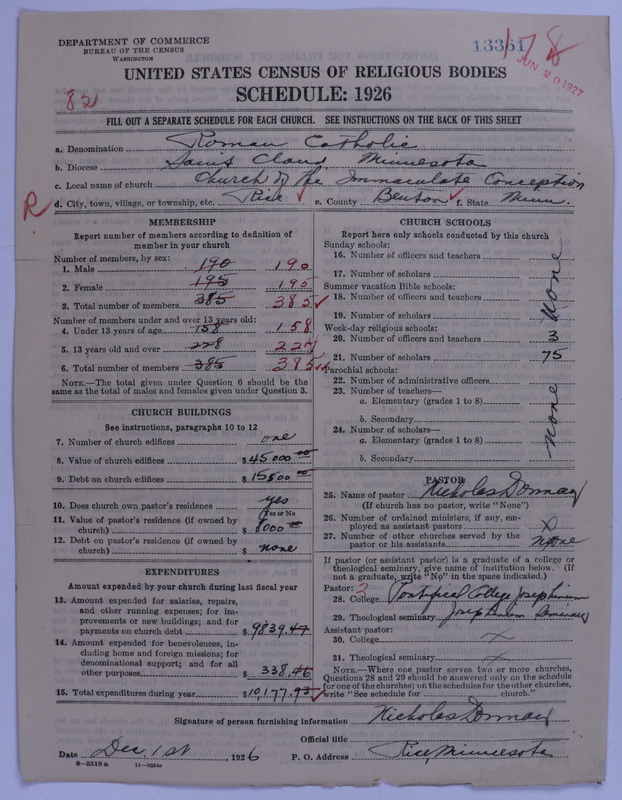 DEPARTMENT OF COMMERCE
BUREAU OF THE CENSUS
WASHINGTON
13361
178
JUN 20 1927
UNITED STATES CENSUS OF RELIGIOUS BODIES
SCHEDULE: 1926
82
FILL OUT A SEPARATE SCHEDULE FOR EACH CHURCH. SEE INSTRUCTIONS ON THE BACK OF THIS SHEET
a. Denomination Roman Catholic
b. Diocese Saint Cloud, Minnesota
c. Local name of church Church of the Immaculate Conception
R
d. City, town, village, or township, etc. Rice ✓ e. County Benton ✓ f. State Minn.
MEMBERSHIP
Report number of members according to definition of
member in your church
Number of members, by sex:
1. Male 190 190
2. Female 195 195
3. Total number of members 385 385 ✓
Number of members under and over 13 years old:
4. Under 13 years of age 158 158
5. 13 years old and over 228 227
6. Total number of members 385 385 ✓
NOTE.—The total given under Question 6 should be the
same as the total of males and females given under Question 3.
CHURCH BUILDINGS
See instructions, paragraphs 10 to 12
7. Number of church edifices one
8. Value of church edifices $45000 00
9. Debt on church edifices $15500 00
10. Does church own pastor's residence yes
Yes or No
11. Value of pastor's residence (if owned by
church) $ 8000 00
12. Debt on pastor's residence (if owned by
church) $ none
EXPENDITURES
Amount expended by your church during last fiscal year
13. Amount expended for salaries, repairs,
and other running expenses; for im-
provements or new buildings; and for
payments on church debt $9839.47
14. Amount expended for benevolences, in-
cluding home and foreign missions; for
denominational support; and for all
other purposes $ 338.46
15. Total expenditures during year $10,177.93 ✓
CHURCH SCHOOLS
Report here only schools conducted by this church
Sunday schools:
16. Number of officers and teachers
17. Number of scholars
Summer vacation Bible schools:
18. Number of officers and teachers
19. Number of scholars
None
Week-day religious schools:
20. Number of officers and teachers 3
21. Number of scholars 75
Parochial schools:
22. Number of administrative officers
23. Number of teachers—
a. Elementary (grades 1 to 8)
b. Secondary
24. Number of scholars—
a. Elementary (grades 1 to 8)
b. Secondary
none
PASTOR
25. Name of pastor Nicholas Donnay
(If church has no pastor, write "None")
26. Number of ordained ministers, if any, em-
ployed as assistant pastors
27. Number of other churches served by the
pastor or his assistants None
If pastor (or assistant pastor) is a graduate of a college or
theological seminary, give name of institution below. (If
not a graduate, write "No" in the space indicated.)
Pastor: 2
28. College Pontifical College Josephinum
29. Theological seminary Josephinum Seminary
Assistant pastor:
30. College
31. Theological seminary
NOTE.—Where one pastor serves two or more churches,
Questions 28 and 29 should be answered only on the schedule
for one of the churches; on the schedules for the other churches,
write "See schedule for ........ church."
Signature of person furnishing information Nicholas Donnay
Official title
Date Dec. 1st, 1926 P. O. Address Rice, Minnesota
8—5518 a